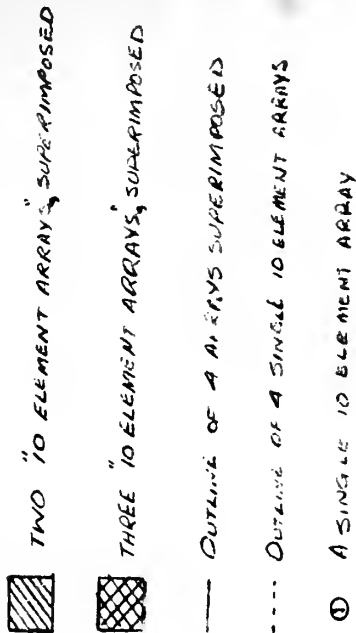 TWO "10 ELEMENT ARRAYS", SUPERIMPOSED
THREE "10 ELEMENT ARRAYS", SUPERIMPOSED
OUTLINE OF 4 ARRAYS SUPERIMPOSED
OUTLINE OF A SINGLE 10 ELEMENT ARRAYS
① A SINGLE 10 ELEMENT ARRAY